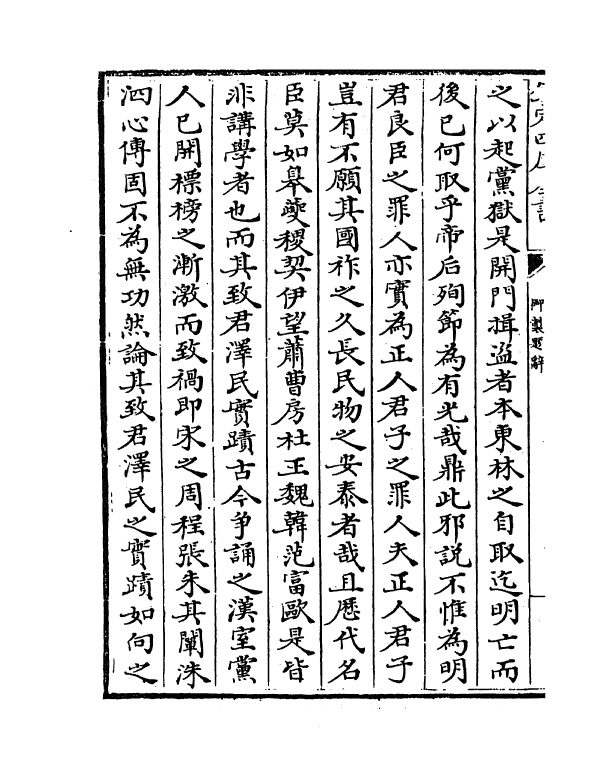 之以起黨獄是開門揖盗者本東林之自取迄明亡而
後已何取乎帝后殉節為有光哉鼎此邪說不惟為明
君良臣之罪人亦實為正人君子之罪人夫正人君子
豈有不願其國祚之久長民物之安泰者哉且歴代名
臣莫如皋夔稷契伊望蕭曹房杜王魏韓范富歐是皆
非講學者也而其致君澤民實蹟古今争誦之漢室黨
人已開標榜之漸激而致禍即宋之周程張朱其闡洙
泗心傳固不為無功然論其致君澤民之實蹟如向之
御製題辭